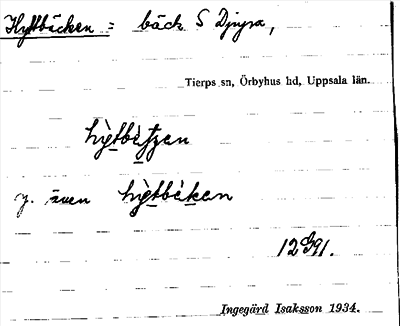 Hyttbäcken = bäck S Djupa,
Tierps sn, Örbyhus hd, Uppsala län.
hy̆tbètʃen
y. även hy̆tbèken
12 991.
Ingegärd Isaksson 1934.